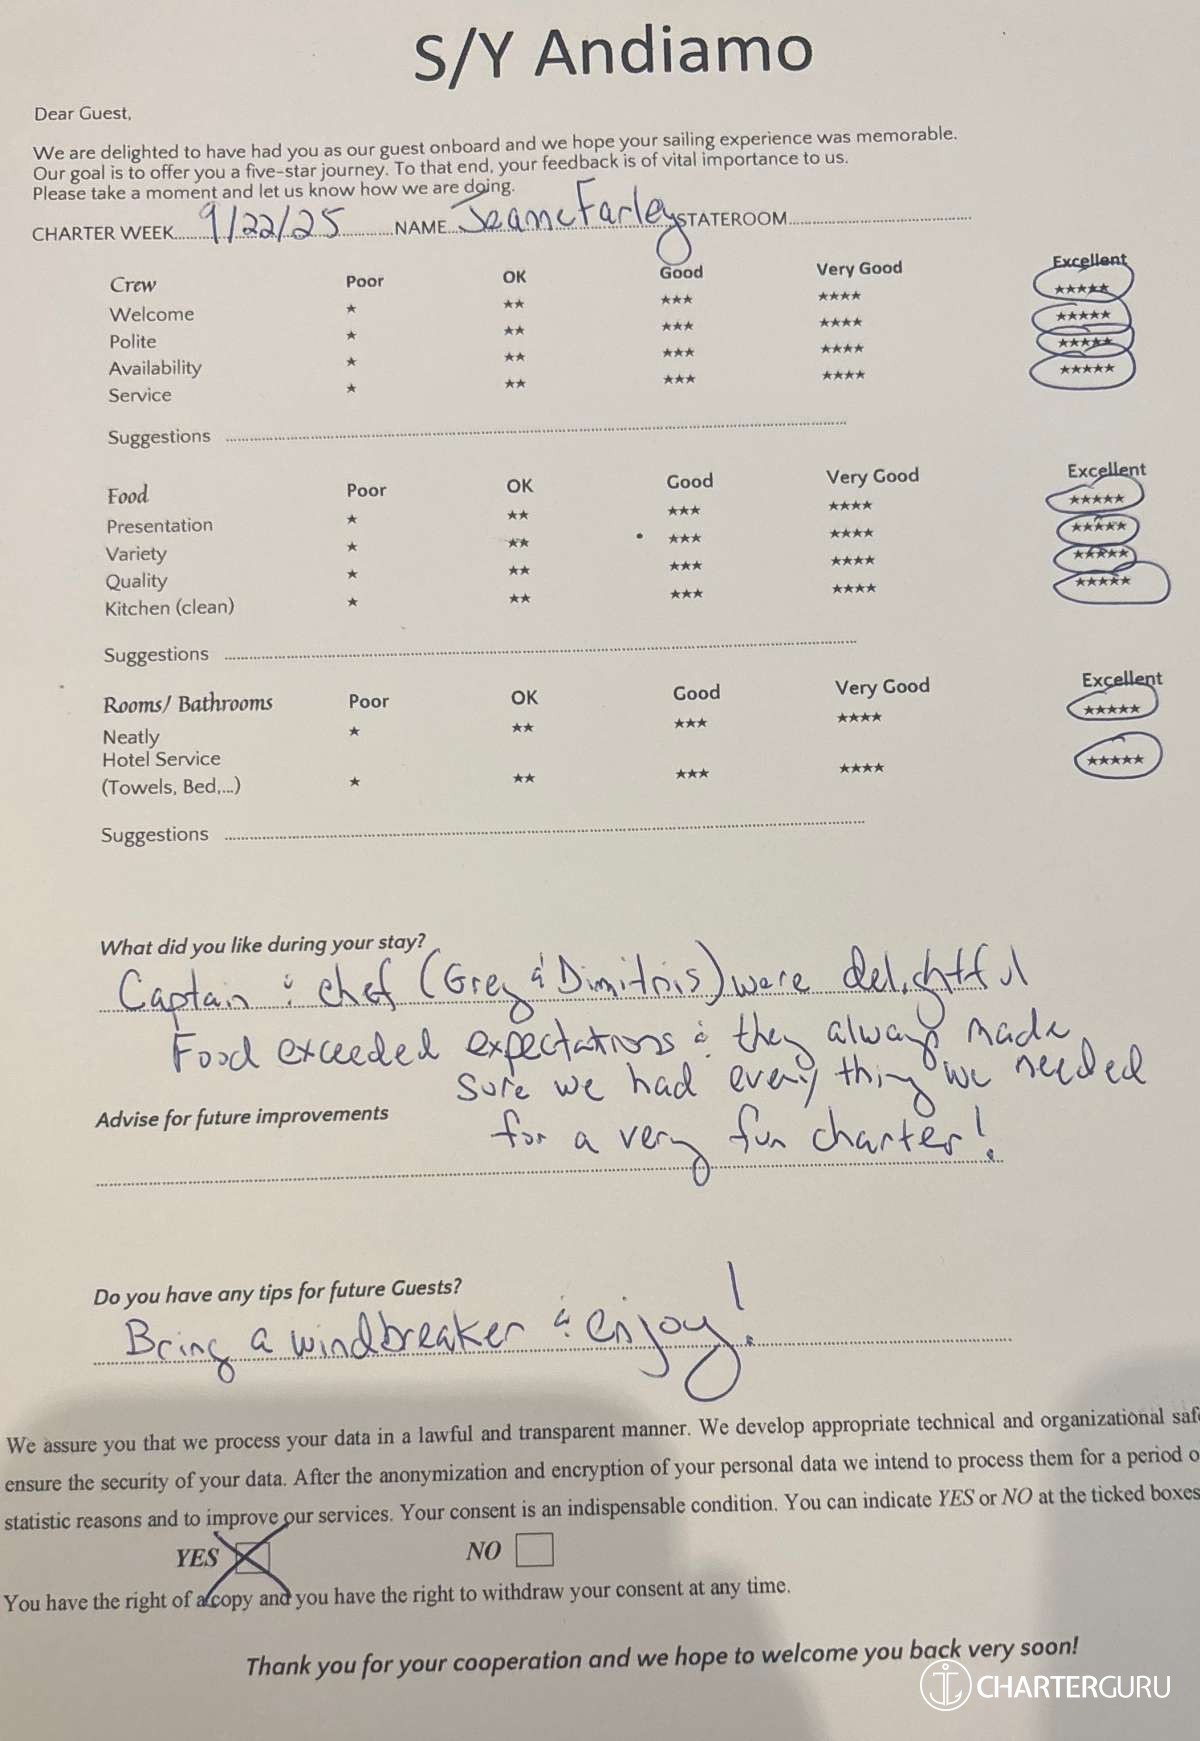 S/Y Andiamo
Dear Guest,
We are delighted to have had you as our guest onboard and we hope your sailing experience was memorable.
Our goal is to offer you a five-star journey. To that end, your feedback is of vital importance to us.
Please take a moment and let us know how we are doing.
CHARTER WEEK 9/22/25 NAME Jeanne Farley STATEROOM
Crew Poor OK Good Very Good Excellent
Welcome ★ ★★ ★★★ ★★★★ ★★★★★
Polite ★ ★★ ★★★ ★★★★ ★★★★★
Availability ★ ★★ ★★★ ★★★★ ★★★★★
Service ★ ★★ ★★★ ★★★★ ★★★★★
Suggestions
Food Poor OK Good Very Good Excellent
Presentation ★ ★★ ★★★ ★★★★ ★★★★★
Variety ★ ★★ ★★★ ★★★★ ★★★★★
Quality ★ ★★ ★★★ ★★★★ ★★★★★
Kitchen (clean) ★ ★★ ★★★ ★★★★ ★★★★★
Suggestions
Rooms/ Bathrooms Poor OK Good Very Good Excellent
Neatly ★ ★★ ★★★ ★★★★ ★★★★★
Hotel Service
(Towels, Bed,...) ★ ★★ ★★★ ★★★★ ★★★★★
Suggestions
What did you like during your stay?
Captain & chef (Greg & Dimitris) were delightful
Food exceeded expectations & they always made
sure we had every thing we needed
Advise for future improvements
for a very fun charter!
Do you have any tips for future Guests?
Bring a windbreaker & enjoy!
We assure you that we process your data in a lawful and transparent manner. We develop appropriate technical and organizational safe
ensure the security of your data. After the anonymization and encryption of your personal data we intend to process them for a period o
statistic reasons and to improve our services. Your consent is an indispensable condition. You can indicate YES or NO at the ticked boxes
YES NO
You have the right of a copy and you have the right to withdraw your consent at any time.
Thank you for your cooperation and we hope to welcome you back very soon!
CHARTERGURU